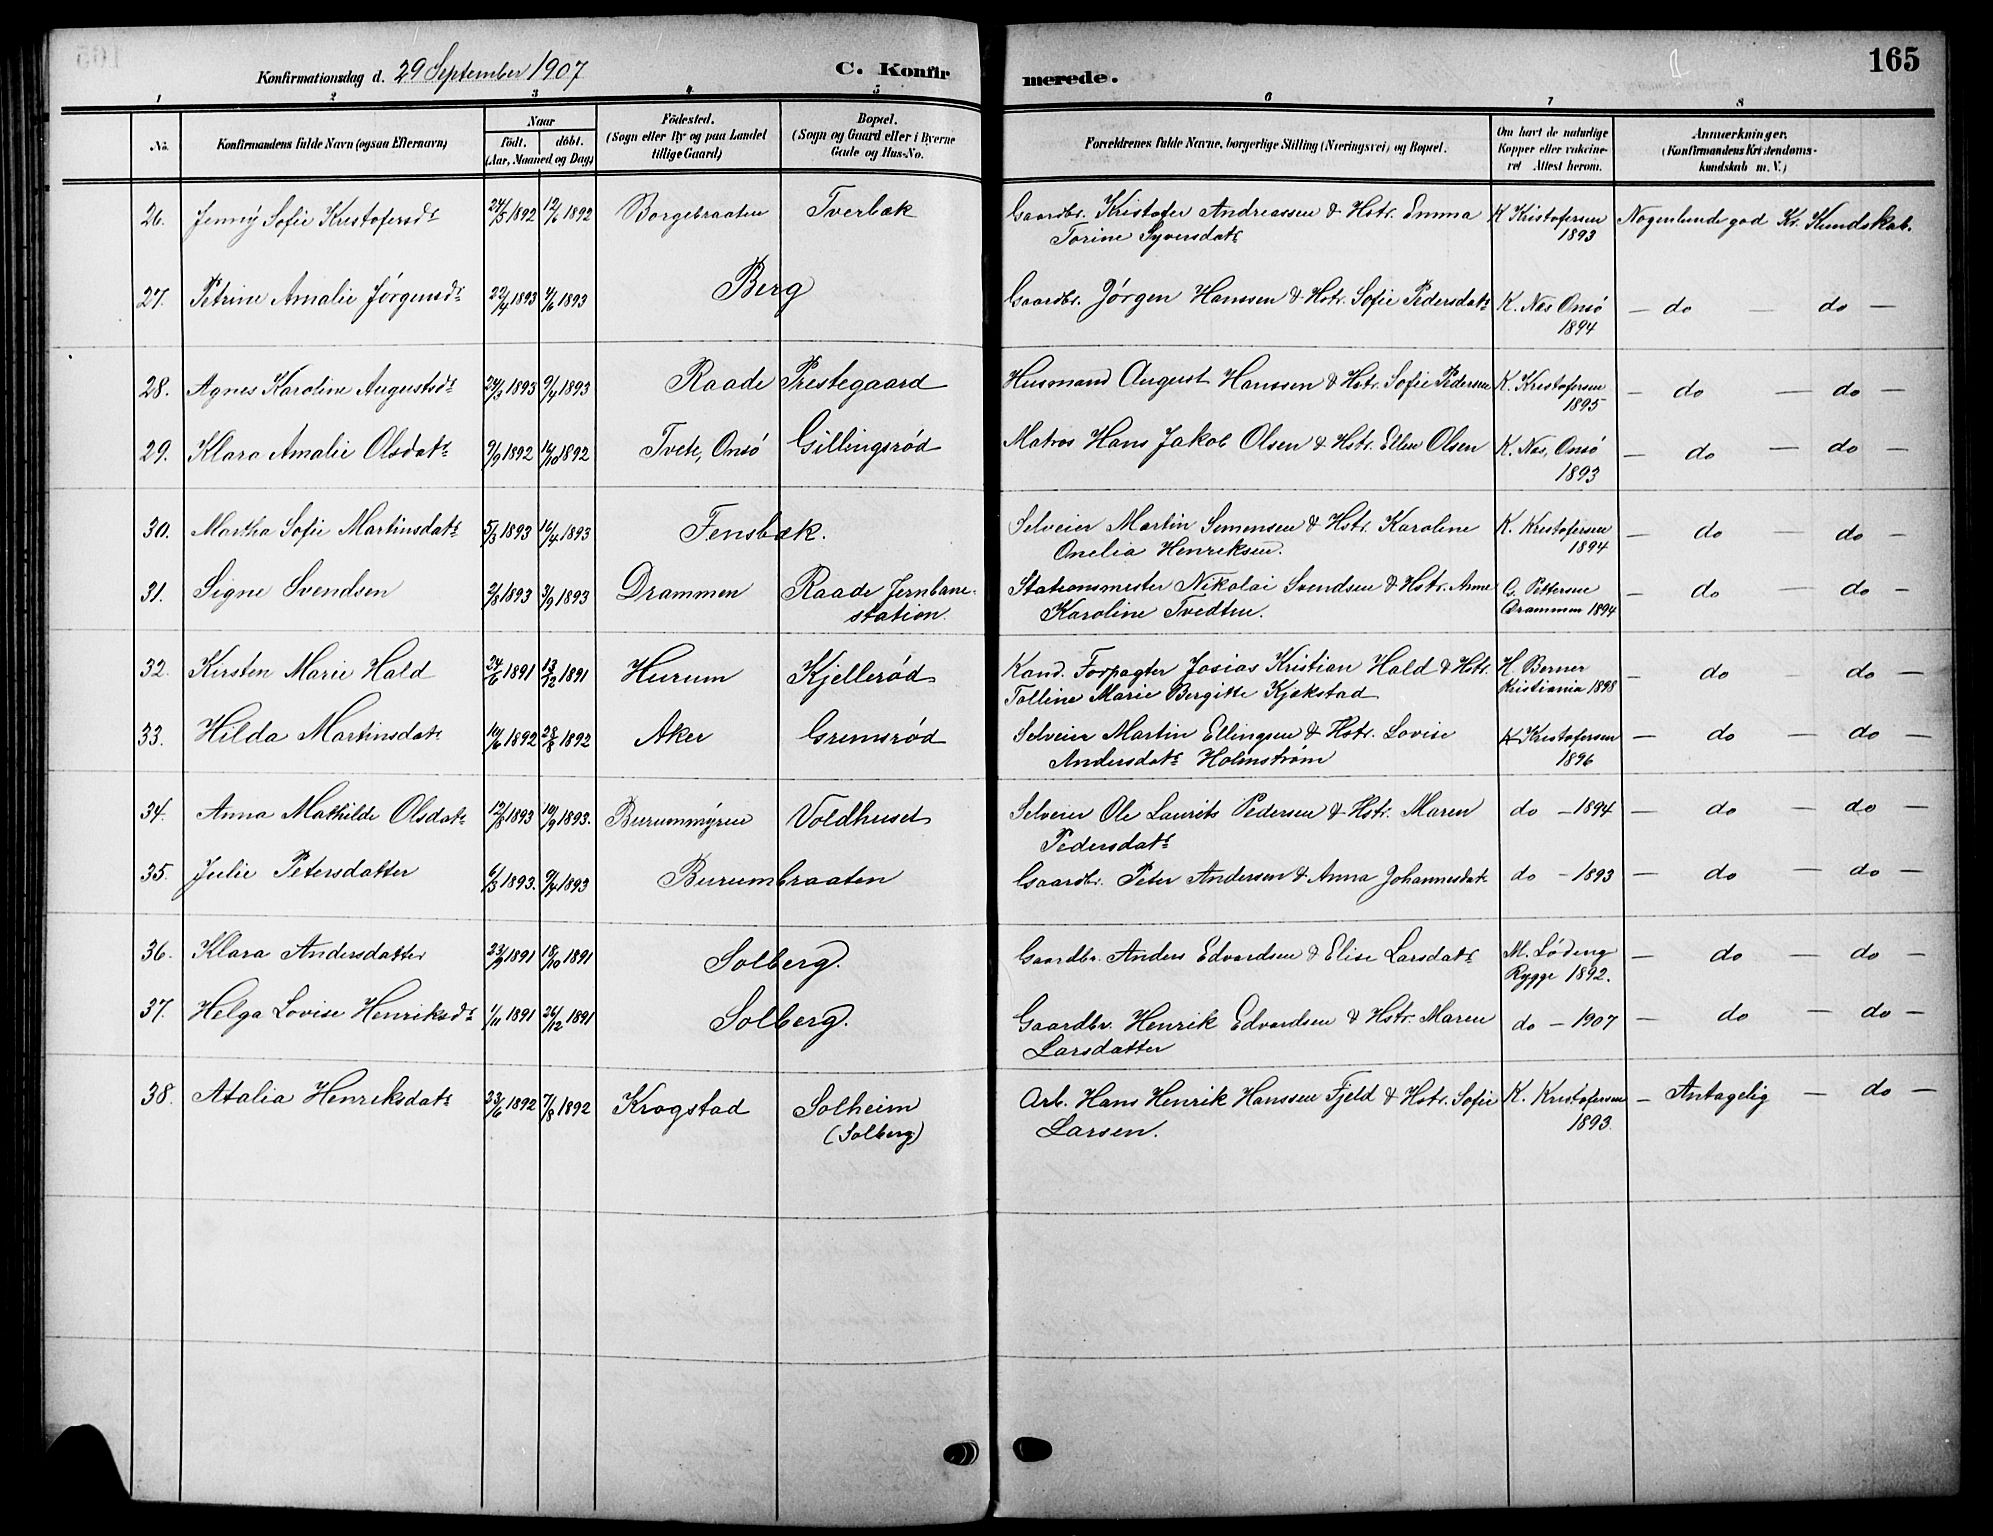 165
Konfirmationsdag d. 29 September 1907 C. Konfirmerede.
1 2 3 4 5 6 7 8
No. Konfirmandens fulde Navn (ogsaa Efternavn) Naar födt. döbt. (Aar, Maaned og Dag) Födested. (Sogn eller By og paa Landet tillige Gaard) Bopæl. (Sogn og Gaard eller i Byerne Gade og Hus-No. Forældrenes fulde Navne, borgerlige Stilling (Næringsvei) og Bopæl. Om havt de naturlige Kopper eller vakcineret Attest herom. Anmærkninger. (Konfirmandens Kristendomskundskab m. V.)
26. Jenny Sofie Kristofersdr 24/5 1892 12/6 1892 Borgebraaten Tverbæk Gaardbr. Kristofer Andreassen & Hstr. Emma K Kristofersen Nogenlunde god Kr. Kundskab.
Torine Syversdatr 1893
27. Petrine Amalie Jørgensdr 22/4 1893 4/6 1893 Berg Gaardbr. Jørgen Hanssen & Hstr. Sofie Pedersdatr K. Næs Onsö — do — do —
1894
28. Agnes Karoline Augustsdr 24/3 1893 9/4 1893 Raade Prestegaard Husmand August Hanssen & Hstr. Sofie Pedersen K. Kristofersen — do — do —
1895
29. Klara Amalie Olsdatr 9/9 1892 16/10 1892 Tvete, Onsö Gillingsrød Matros Hans Jakob Olsen & Hstr. Ellen Olsen K. Næs, Onsö — do — do —
1893
30. Martha Sofie Martinsdatr 5/3 1893 16/4 1893 Fensbæk. Selveier Martin Simensen & Hstr. Karoline K. Kristofersen — do — do —
Onelia Henriksen. 1894
31. Signe Svendsen 2/8 1893 3/9 1893 Drammen Raade Jernbane- Stationsmester Nikolai Svendsen & Hstr. Anne G. Pettersen — do — do —
station. Karoline Tvedten. Drammen 1894
32. Kirsten Marie Hald 24/6 1891 13/12 1891 Hurum Kjellerød Kand. Forpagter Josias Kristian Hald & Hstr. H. Berner — do — do —
Talline Marie Bergitte Kjekstad Kristiania 1898
33. Hilda Martinsdatr 10/6 1892 28/8 1892 Aker Gremsrød Selveier Martin Ellingsen & Hstr. Lovise K Kristofersen — do — do —
Andersdatr Holmstrøm 1896
34. Anna Mathilde Olsdatr 12/8 1893 10/9 1893. Burummyren Voldhuset Selveier Ole Laurits Pedersen & Hstr. Maren do — 1894 — do — do —
Pedersdatr
35. Julie Petersdatter 6/3 1893. 9/4 1893 Burumbraaten Gaardbr. Peter Andersen & Anna Johannesdatr do — 1893 — do — do —
36. Klara Andersdatter 23/9 1891 18/10 1891 Solberg. Gaardbr. Anders Edvardsen & Elise Larsdatr M. Lødeng — do — do —
Rygge 1892.
37. Helga Lovise Henriksdr 1/11 1891 26/12 1891 Solberg. Gaardbr. Henrik Edvardsen & Hstr. Maren do — 1907 — do — do —
Larsdatter
38. Atalia Henriksdatr 23/6 1892 7/8 1892 Krogstad Solheim Arb. Hans Henrik Hanssen Fjeld & Hstr. Sofie K. Kristofersen — Antagelig — do —
(Solberg) Larsen. 1893.